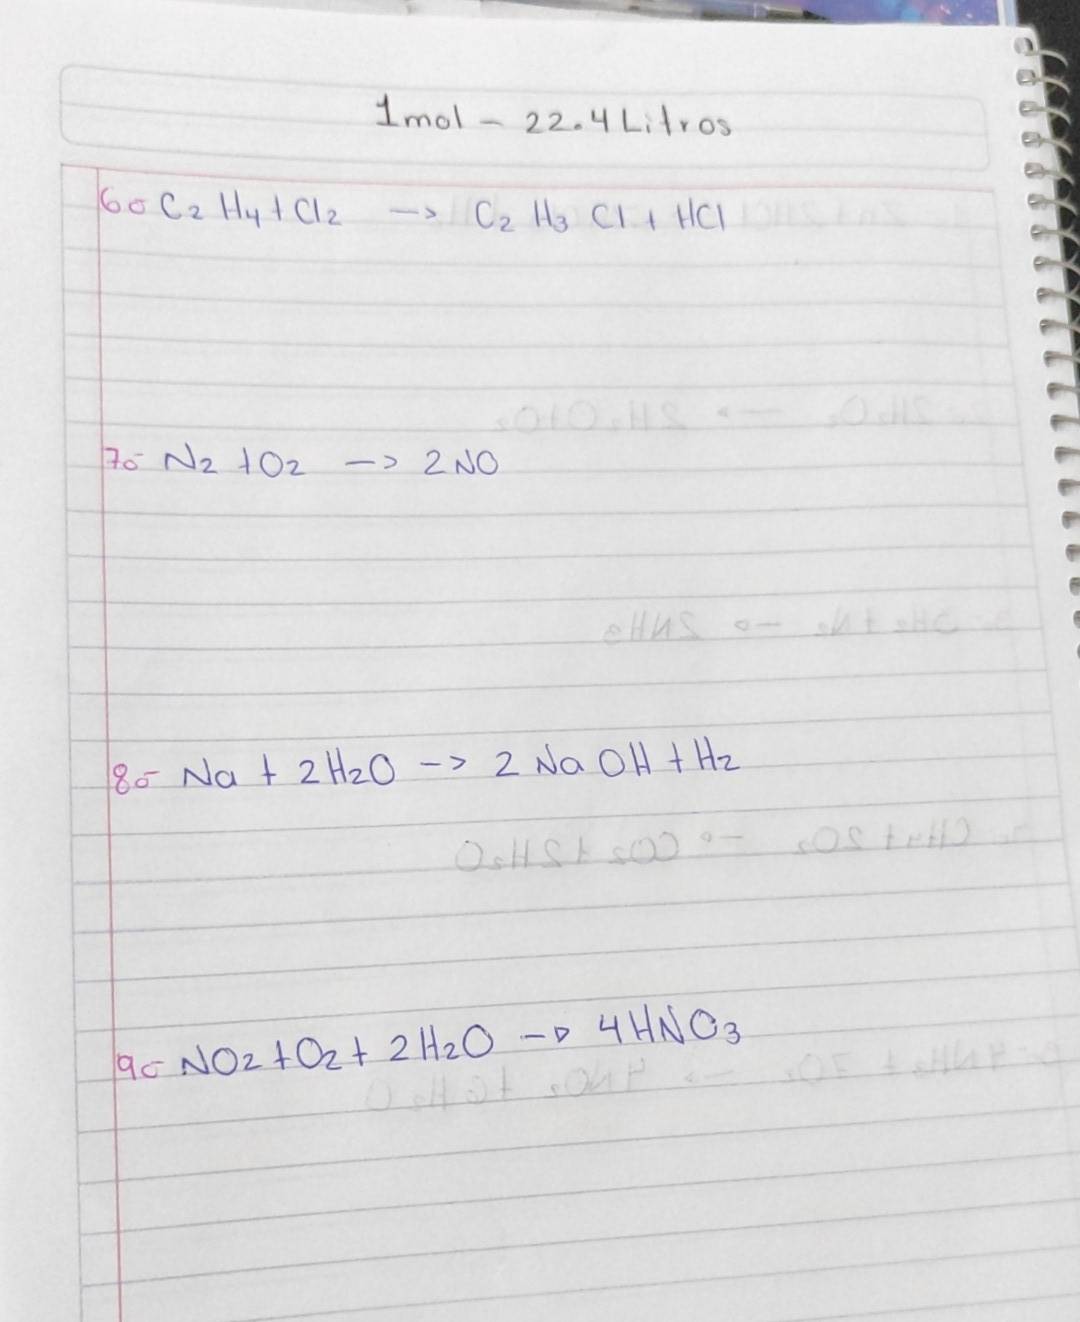 1mol - 22.4 Litros
6.- C2 H4 + Cl2 -> C2 H3 Cl + HCl
7.- N2 + O2 -> 2NO
8.- Na + 2H2O -> 2 NaOH + H2
9.- NO2 + O2 + 2H2O -> 4HNO3